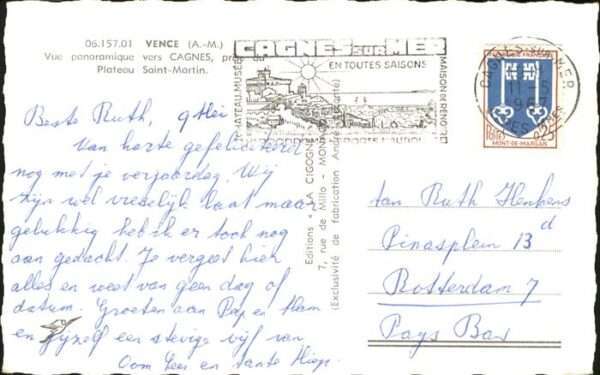 06.157.01 VENCE (A.-M.)
Vue panoramique vers CAGNES, pr
Plateau Saint-Martin.
CAGNES-SUR-MER
EN TOUTES SAISONS
CHATEAU MUSÉE
MAISON DE RENOIR
CAGNES-SUR-MER
11-5
MONT-DE-MARSAN
Editions "LA CIGOGNE"
7, rue de Millo - MON
(Exclusivité de fabrication
Beste Ruth,
Van harte gefeliciteerd
nog met je verjaardag. Wij
zijn wel vreselijk laat maar
gelukkig heb ik er toch nog
aan gedacht. Je vergeet hier
alles en weet van geen dag of
datum. Groeten aan Pap en Mam
en jijzelf een stevige vijf van
Oom Kees en tante
aan Ruth
Pinasplein 13 d
Rotterdam 7
Pays Bas